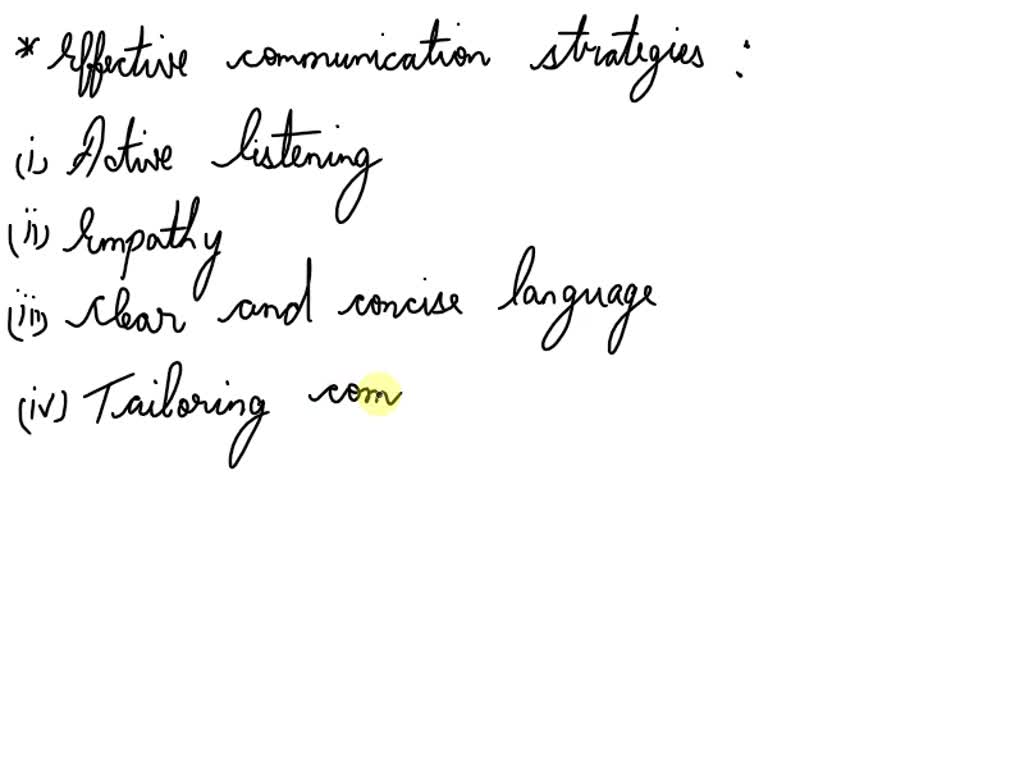 * Effective communication strategies :
(i) Active listening
(ii) Empathy
(iii) Clear and concise language
(iv) Tailoring com